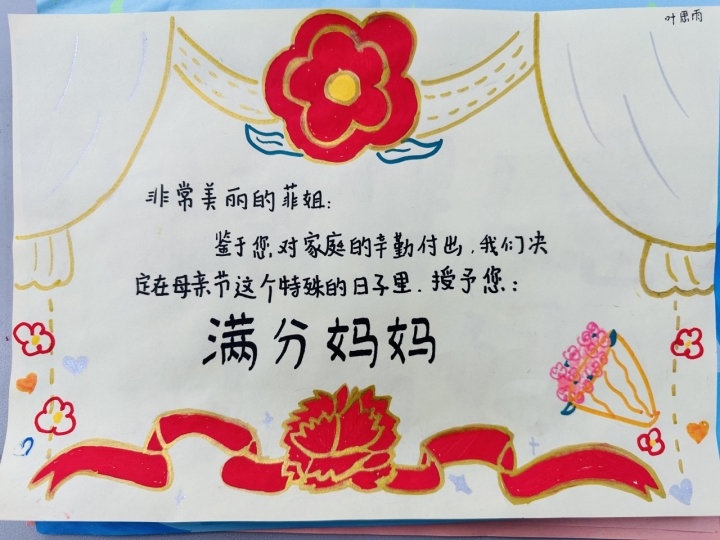 叶思雨
非常美丽的菲姐：
鉴于您对家庭的辛勤付出，我们决
定在母亲节这个特殊的日子里．授予您：
满分妈妈